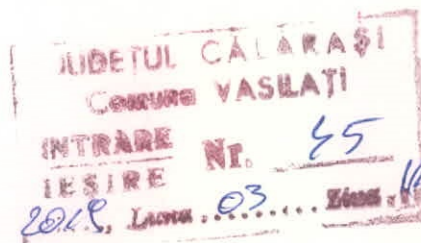 JUDEȚUL CĂLĂRAȘI
Comuna VASILAȚI
INTRARE
IEȘIRE Nr. 45
Luna 03 Ziua